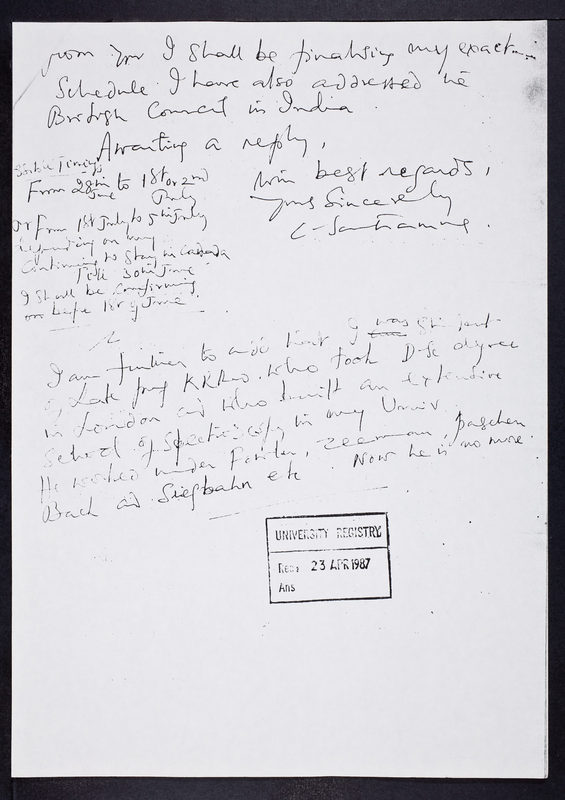 from you I shall be finalising my exact
Schedule I have also addressed the
British Council in India.
Awaiting a reply,
with best regards,
Yours Sincerely
C-Santhamma.
From 28th to 1st or 2nd
June July
or From 1st July to 5th July
depending on my
Continuing to stay in Canada
till 30th June
I shall be confirming
on before 1st of June.
I am further to add that I was student
of Late prof KRRao. who took D-Sc degree
in London and who built an extensive
School of Spectroscopy in my Univ
He worked under Fowler, Zeeman, paschen
Back and Siegbahn etc. Now he is no more.
UNIVERSITY REGISTRY
Rec: 23 APR 1987
Ans